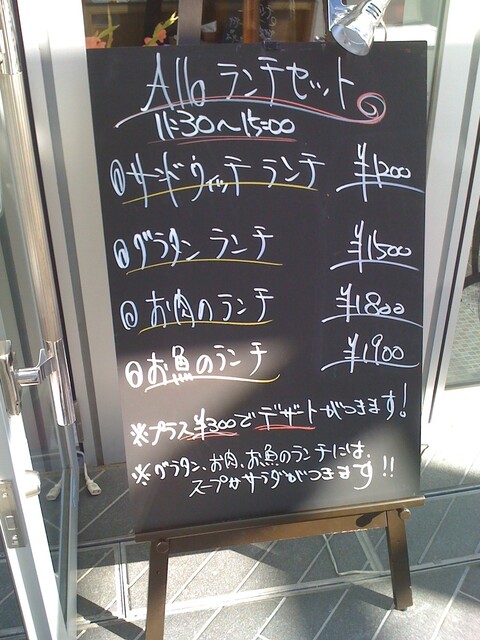 Allo ランチセット
11:30〜15:00
サンドウィッチランチ ¥1200
グラタンランチ ¥1500
お肉のランチ ¥1800
お魚のランチ ¥1900
※プラス¥300でデザートがつきます!
※グラタン、お肉、お魚のランチには、
スープかサラダがつきます!!